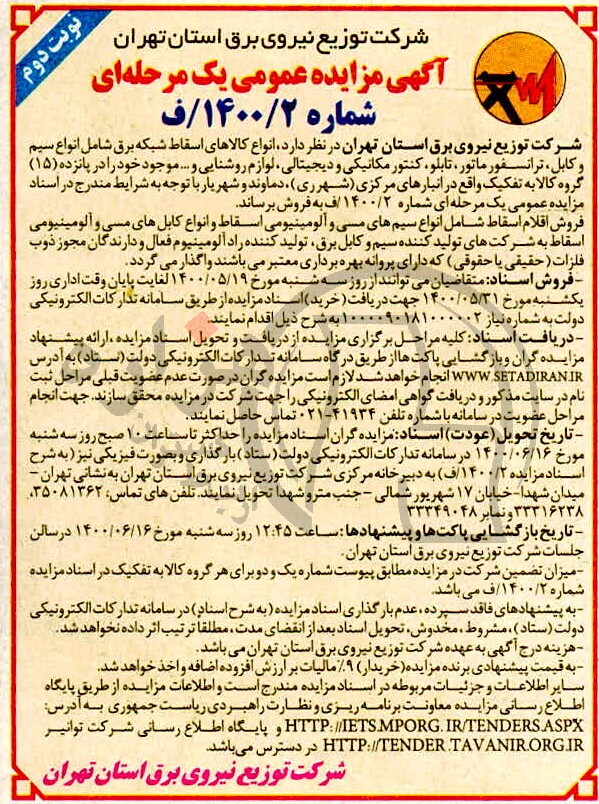 نوبت دوم
شرکت توزیع نیروی برق استان تهران
آگهی مزایده عمومی یک مرحله‌ای
شماره ۱۴۰۰/۲/ف
شرکت توزیع نیروی برق استان تهران در نظر دارد، انواع کالاهای اسقاط شبکه برق شامل انواع سیم
و کابل، ترانسفورماتور، تابلو، کنتور مکانیکی و دیجیتالی، لوازم روشنایی و... موجود خود را در پانزده (۱۵)
گروه کالا به تفکیک واقع در انبارهای مرکزی (شهرری)، دماوند و شهریار با توجه به شرایط مندرج در اسناد
مزایده عمومی یک مرحله‌ای شماره ۱۴۰۰/۲/ف به فروش برساند.
فروش اقلام اسقاط شامل انواع سیم های مسی و آلومینیومی اسقاط و انواع کابل های مسی و آلومینیومی
اسقاط به شرکت های تولید کننده سیم و کابل برق، تولید کننده راد آلومینیوم فعال و دارندگان مجوز ذوب
فلزات (حقیقی یا حقوقی) که دارای پروانه بهره برداری معتبر می باشند واگذار می گردد.
-فروش اسناد: متقاضیان می توانند از روز سه شنبه مورخ ۱۴۰۰/۰۵/۱۹ لغایت پایان وقت اداری روز
یکشنبه مورخ ۱۴۰۰/۰۵/۳۱ جهت دریافت (خرید) اسناد مزایده از طریق سامانه تدارکات الکترونیکی
دولت به شماره نیاز ۱۰۰۰۰۹۰۱۸۱۰۰۰۰۰۲ به شرح ذیل اقدام نمایند.
-دریافت اسناد: کلیه مراحل برگزاری مزایده از دریافت و تحویل اسناد مزایده، ارائه پیشنهاد
مزایده گران و بازگشایی پاکت ها از طریق درگاه سامانه تدارکات الکترونیکی دولت (ستاد) به آدرس
WWW.SETADIRAN.IR انجام خواهد شد لازم است مزایده گران در صورت عدم عضویت قبلی مراحل ثبت
نام در سایت مذکور و دریافت گواهی امضای الکترونیکی را جهت شرکت در مزایده محقق سازند. جهت انجام
مراحل عضویت در سامانه با شماره تلفن ۴۱۹۳۴-۰۲۱ تماس حاصل نمایند.
-تاریخ تحویل (عودت) اسناد: مزایده گران اسناد مزایده را حداکثر تا ساعت ۱۰ صبح روز سه شنبه
مورخ ۱۴۰۰/۰۶/۱۶ در سامانه تدارکات الکترونیکی دولت (ستاد) بارگذاری و بصورت فیزیکی نیز (به شرح
اسناد مزایده ۱۴۰۰/۲/ف) به دبیرخانه مرکزی شرکت توزیع نیروی برق استان تهران به نشانی تهران -
میدان شهدا-خیابان ۱۷ شهریور شمالی - جنب مترو شهدا تحویل نمایند. تلفن های تماس: ۳۵۰۸۱۳۶۲،
۳۳۳۱۶۲۳۸ و نمابر ۳۳۳۴۹۰۴۸
-تاریخ بازگشایی پاکت ها و پیشنهادها: ساعت ۱۲:۴۵ روز سه شنبه مورخ ۱۴۰۰/۰۶/۱۶ در سالن
جلسات شرکت توزیع نیروی برق استان تهران.
-میزان تضمین شرکت در مزایده مطابق پیوست شماره یک و دو برای هر گروه کالا به تفکیک در اسناد مزایده
شماره ۱۴۰۰/۲/ف می باشد.
-به پیشنهادهای فاقد سپرده، عدم بارگذاری اسناد مزایده (به شرح اسناد) در سامانه تدارکات الکترونیکی
دولت (ستاد)، مشروط، مخدوش، تحویل اسناد بعد از انقضای مدت، مطلقا ترتیب اثر داده نخواهد شد.
-هزینه درج آگهی به عهده شرکت توزیع نیروی برق استان تهران می باشد.
-به قیمت پیشنهادی برنده مزایده (خریدار) ۹٪ مالیات بر ارزش افزوده اضافه و اخذ خواهد شد.
سایر اطلاعات و جزئیات مربوطه در اسناد مزایده مندرج است و اطلاعات مزایده از طریق پایگاه
اطلاع رسانی مزایده معاونت برنامه ریزی و نظارت راهبردی ریاست جمهوری به آدرس:
HTTP://IETS.MPORG.IR/TENDERS.ASPX و پایگاه اطلاع رسانی شرکت توانیر
HTTP://TENDER.TAVANIR.ORG.IR در دسترس می‌باشد.
شرکت توزیع نیروی برق استان تهران